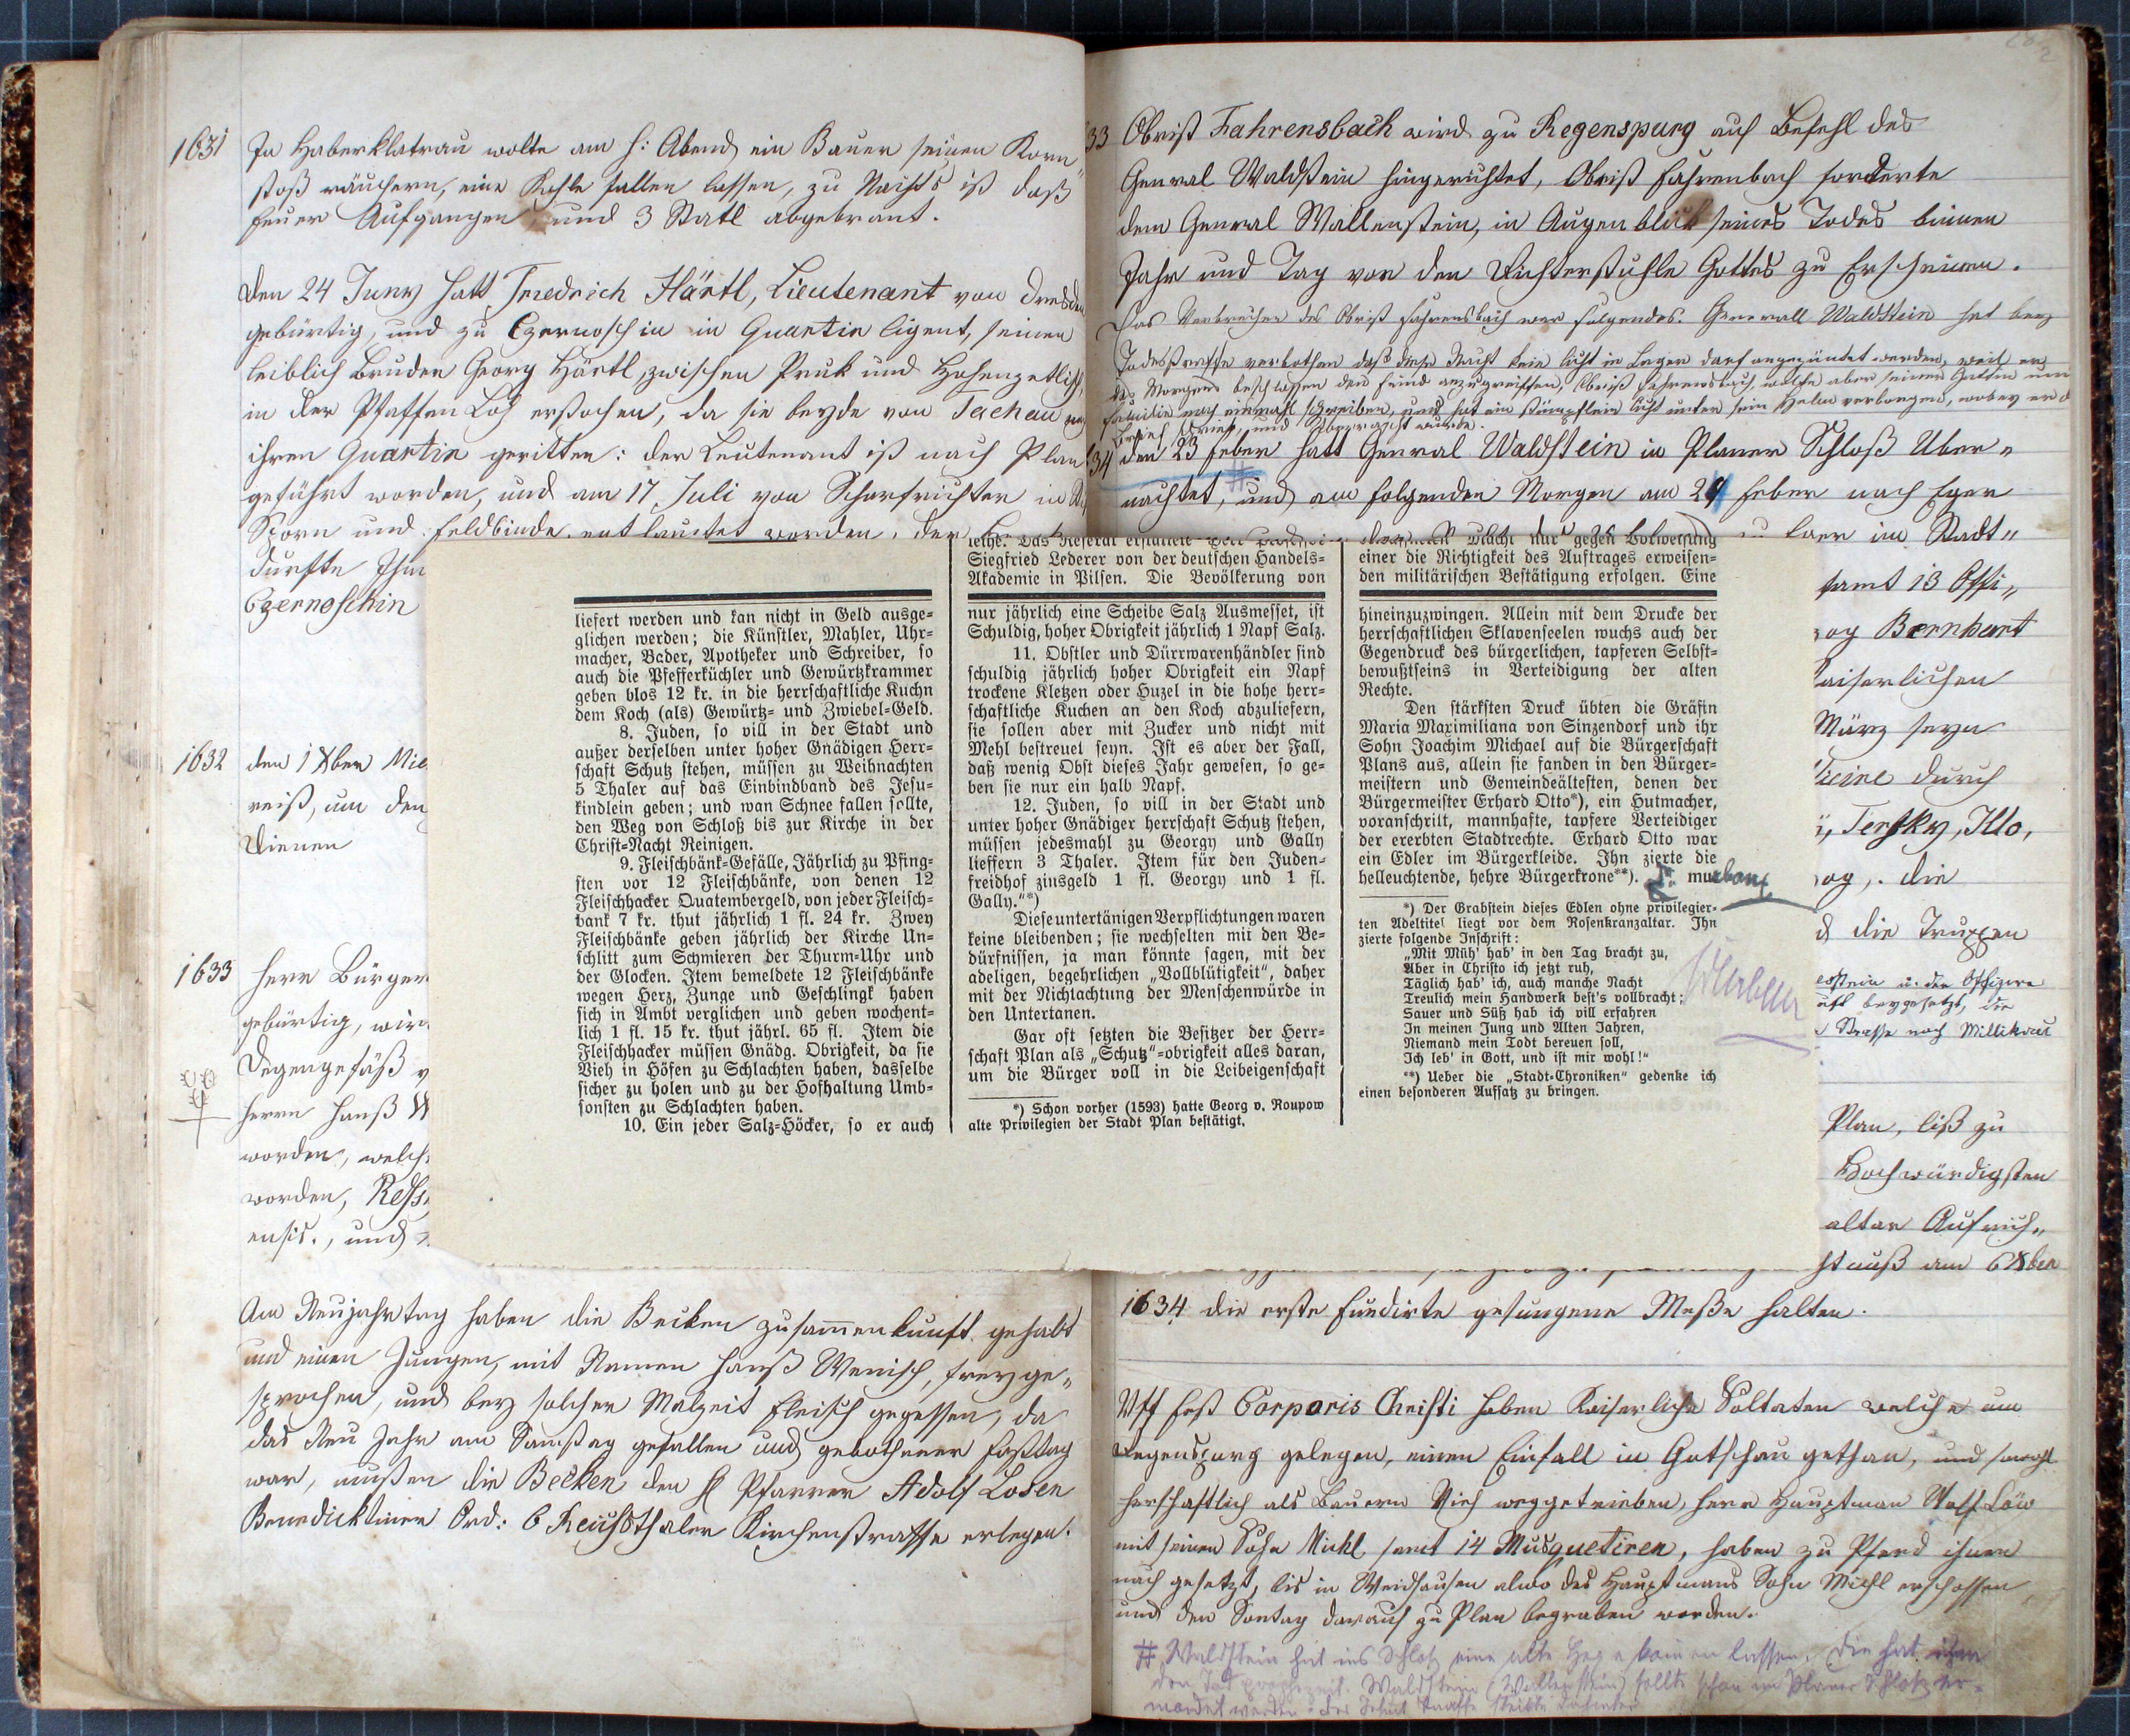 1631 In Haberklatrau wolte am H: Abend ein Bauer seinen Korn„
stoß räuchern, eine Kohle fallen lassen, zu Nachts ist daß
Feuer Aufgangen und 3 Statl abgebrant.
den 24 Juny hatt Friedrich Härtl, Lieutenant von Dresden
gebürtig, und zu Czernoschin in Quartir ligent, seinen
leiblich Bruder Georg Härtl, zwischen Pruk und Hohenzetlisch,
in der Pfaffen Loh erstochen, da sie beyde von Tachau
ihren Quartir geritten: der Leutenant ist nach Plan
geführt worden, und am 17 Juli von Scharfrichter in
Sporn und Feldbinde, enthautet worden, der
durfte Ihm
Czernoschin
1632 den 1 Xber
reist, um den
Dienen
1633 Herr Bürger
gebürtig, wird
Degengefäß
Herrn Hanß
worden, welch
worden,
ensis., und
Am Neujahrtag haben die Becken zusammenkunft gehabt
und einen Jungen, mit Namen Hanß Wenisch, freyge„
sprochen, und bey solcher Malzeit Fleisch gegessen, da
das Neu Jahr am Samstag gefallen und gebothener Fasttag
war, musten die Becken den H Pfarrer Adolf Losen
Benedicktiner Ord: 6 Reichsthaler Kirchenstraffe erlegen.
liefert werden und kan nicht in Geld ausge-
glichen werden; die Künstler, Mahler, Uhr-
macher, Bader, Apotheker und Schreiber, so
auch die Pfefferküchler und Gewürtzkrammer
geben blos 12 kr. in die herrschaftliche Kuchn
dem Koch (als) Gewürtz- und Zwiebel-Geld.
8. Juden, so vill in der Stadt und
außer derselben unter hoher Gnädigen Herr-
schaft Schutz stehen, müssen zu Weihnachten
5 Thaler auf das Einbindband des Jesu-
kindlein geben; und wan Schnee fallen sollte,
den Weg von Schloß bis zur Kirche in der
Christ-Nacht Reinigen.
9. Fleischbänk-Gefälle, Jährlich zu Pfing-
sten vor 12 Fleischbänke, von denen 12
Fleischhacker Quatembergeld, von jeder Fleisch-
bank 7 kr. thut jährlich 1 fl. 24 kr. Zwey
Fleischbänke geben jährlich der Kirche Un-
schlitt zum Schmieren der Thurm-Uhr und
der Glocken. Item bemeldete 12 Fleischbänke
wegen Herz, Zunge und Geschlingk haben
sich in Ambt verglichen und geben wochent-
lich 1 fl. 15 kr. thut jährl. 65 fl. Item die
Fleischhacker müssen Gnädg. Obrigkeit, da sie
Vieh in Höfen zu Schlachten haben, dasselbe
sicher zu holen und zu der Hofhaltung Umb-
sonsten zu Schlachten haben.
10. Ein jeder Salz-Höcker, so er auch
Siegfried Lederer von der deutschen Handels-
Akademie in Pilsen. Die Bevölkerung von
nur jährlich eine Scheibe Salz Ausmesset, ist
Schuldig, hoher Obrigkeit jährlich 1 Napf Salz.
11. Obstler und Dürrwarenhändler sind
schuldig jährlich hoher Obrigkeit ein Napf
trockene Kletzen oder Huzel in die hohe herr-
schaftliche Kuchen an den Koch abzuliefern,
sie sollen aber mit Zucker und nicht mit
Mehl bestreuet seyn. Ist es aber der Fall,
daß wenig Obst dieses Jahr gewesen, so ge-
ben sie nur ein halb Napf.
12. Juden, so vill in der Stadt und
unter hoher Gnädiger herrschaft Schutz stehen,
müssen jedesmahl zu Georgy und Gally
lieffern 3 Thaler. Item für den Juden-
freidhof zinsgeld 1 fl. Georgy und 1 fl.
Gally."*)
Diese untertänigen Verpflichtungen waren
keine bleibenden; sie wechselten mit den Be-
dürfnissen, ja man könnte sagen, mit der
adeligen, begehrlichen „Vollblütigkeit", daher
mit der Nichtachtung der Menschenwürde in
den Untertanen.
Gar oft setzten die Besitzer der Herr-
schaft Plan als „Schutz"-obrigkeit alles daran,
um die Bürger voll in die Leibeigenschaft
*) Schon vorher (1593) hatte Georg v. Roupow
alte Privilegien der Stadt Plan bestätigt.
Macht nur gegen Vorweisung
einer die Richtigkeit des Auftrages erweisen-
den militärischen Bestätigung erfolgen. Eine
hineinzuzwingen. Allein mit dem Drucke der
herrschaftlichen Sklavenseelen wuchs auch der
Gegendruck des bürgerlichen, tapferen Selbst-
bewußtseins in Verteidigung der alten
Rechte.
Den stärksten Druck übten die Gräfin
Maria Maximiliana von Sinzendorf und ihr
Sohn Joachim Michael auf die Bürgerschaft
Plans aus, allein sie fanden in den Bürger-
meistern und Gemeindeältesten, denen der
Bürgermeister Erhard Otto*), ein Hutmacher,
voranschritt, mannhafte, tapfere Verteidiger
der ererbten Stadtrechte. Erhard Otto war
ein Edler im Bürgerkleide. Ihn zierte die
helleuchtende, hehre Bürgerkrone**).
*) Der Grabstein dieses Edlen ohne privilegier-
ten Adeltitel liegt vor dem Rosenkranzaltar. Ihn
zierte folgende Inschrift:
„Mit Müh' hab' in den Tag bracht zu,
Aber in Christo ich jetzt ruh,
Täglich hab' ich, auch manche Nacht
Treulich mein Handwerk best's vollbracht;
Sauer und Süß hab ich vill erfahren
In meinen Jung und Alten Jahren,
Niemand mein Todt bereuen soll,
Ich leb' in Gott, und ist mir wohl!"
**) Ueber die „Stadt-Chroniken" gedenke ich
einen besonderen Aufsatz zu bringen.
33 Obrist Fahrensbach wird zu Regenspurg auf Befehl des
General Waldstein hingerichtet, Obrist Fahrenbach forderte
dem General Wallenstein, in Augenblick seines Todes binnen
Jahr und Tag vor den Richterstuhle Gottes zu Erscheinen.
Das Verbrechen des Obrist Fahrensbach war folgendes. Generall Waldstein hat bey
Todesstraffe verbothen daß diese Nacht kein Licht in Lager darf angezüntet werden, weil er
des Morgens beschlossen den Feind anzugreiffen, Obrist Fahrensbach, wolte aber seiner Gattin und
Familie noch einmahl schreiben, und hat ein stümpflein Licht unter sein Helm verborgen, wobey er d
Brief schrieb, und Überrascht wurde.
34 den 23 Feber hatt General Waldstein in Planer Schloß Uber„
nachtet, # und am folgenden Morgen am 24 Feber nach Eger
in Stadt„
samt 13 Offi„
og Bernhart
kaiserlichen
März seyn
durch
Tersky, Illo,
og,. die
d die Truppen
stein u. der Offizire
uft beygesetzt, die
Strasse nach Millikau
Plan, ließ zu
Hochwürdigsten
altar Aufrich„
am 6 Xber
1634 die erste fundirte gesungene Meße halten.
Uff Fest Corporis Christi haben Kaiserliche Soltaten welche um
Regenspurg gelegen, einen Einfall in Gotschau gethan, und sowohl
herschaftlich als Bauern Vieh weggetrieben, Herr Hauptman Wolf Löw
mit seinen Sohn Michl samt 14 Musquetiren, haben zu Pferd ihnen
nach gesetzt, bis in Weidhausen alwo des Hauptmans Sohn Michl erschossen,
und den Sontag darauf zu Plan begraben worden.
# Waldstein hat ins Schloß eine alte Hexe komen lassen. Die hat ihm
den Tod prophezeit. Waldstein (Wallenstein) sollte schon im Planer Schloß er-
mordet werden.